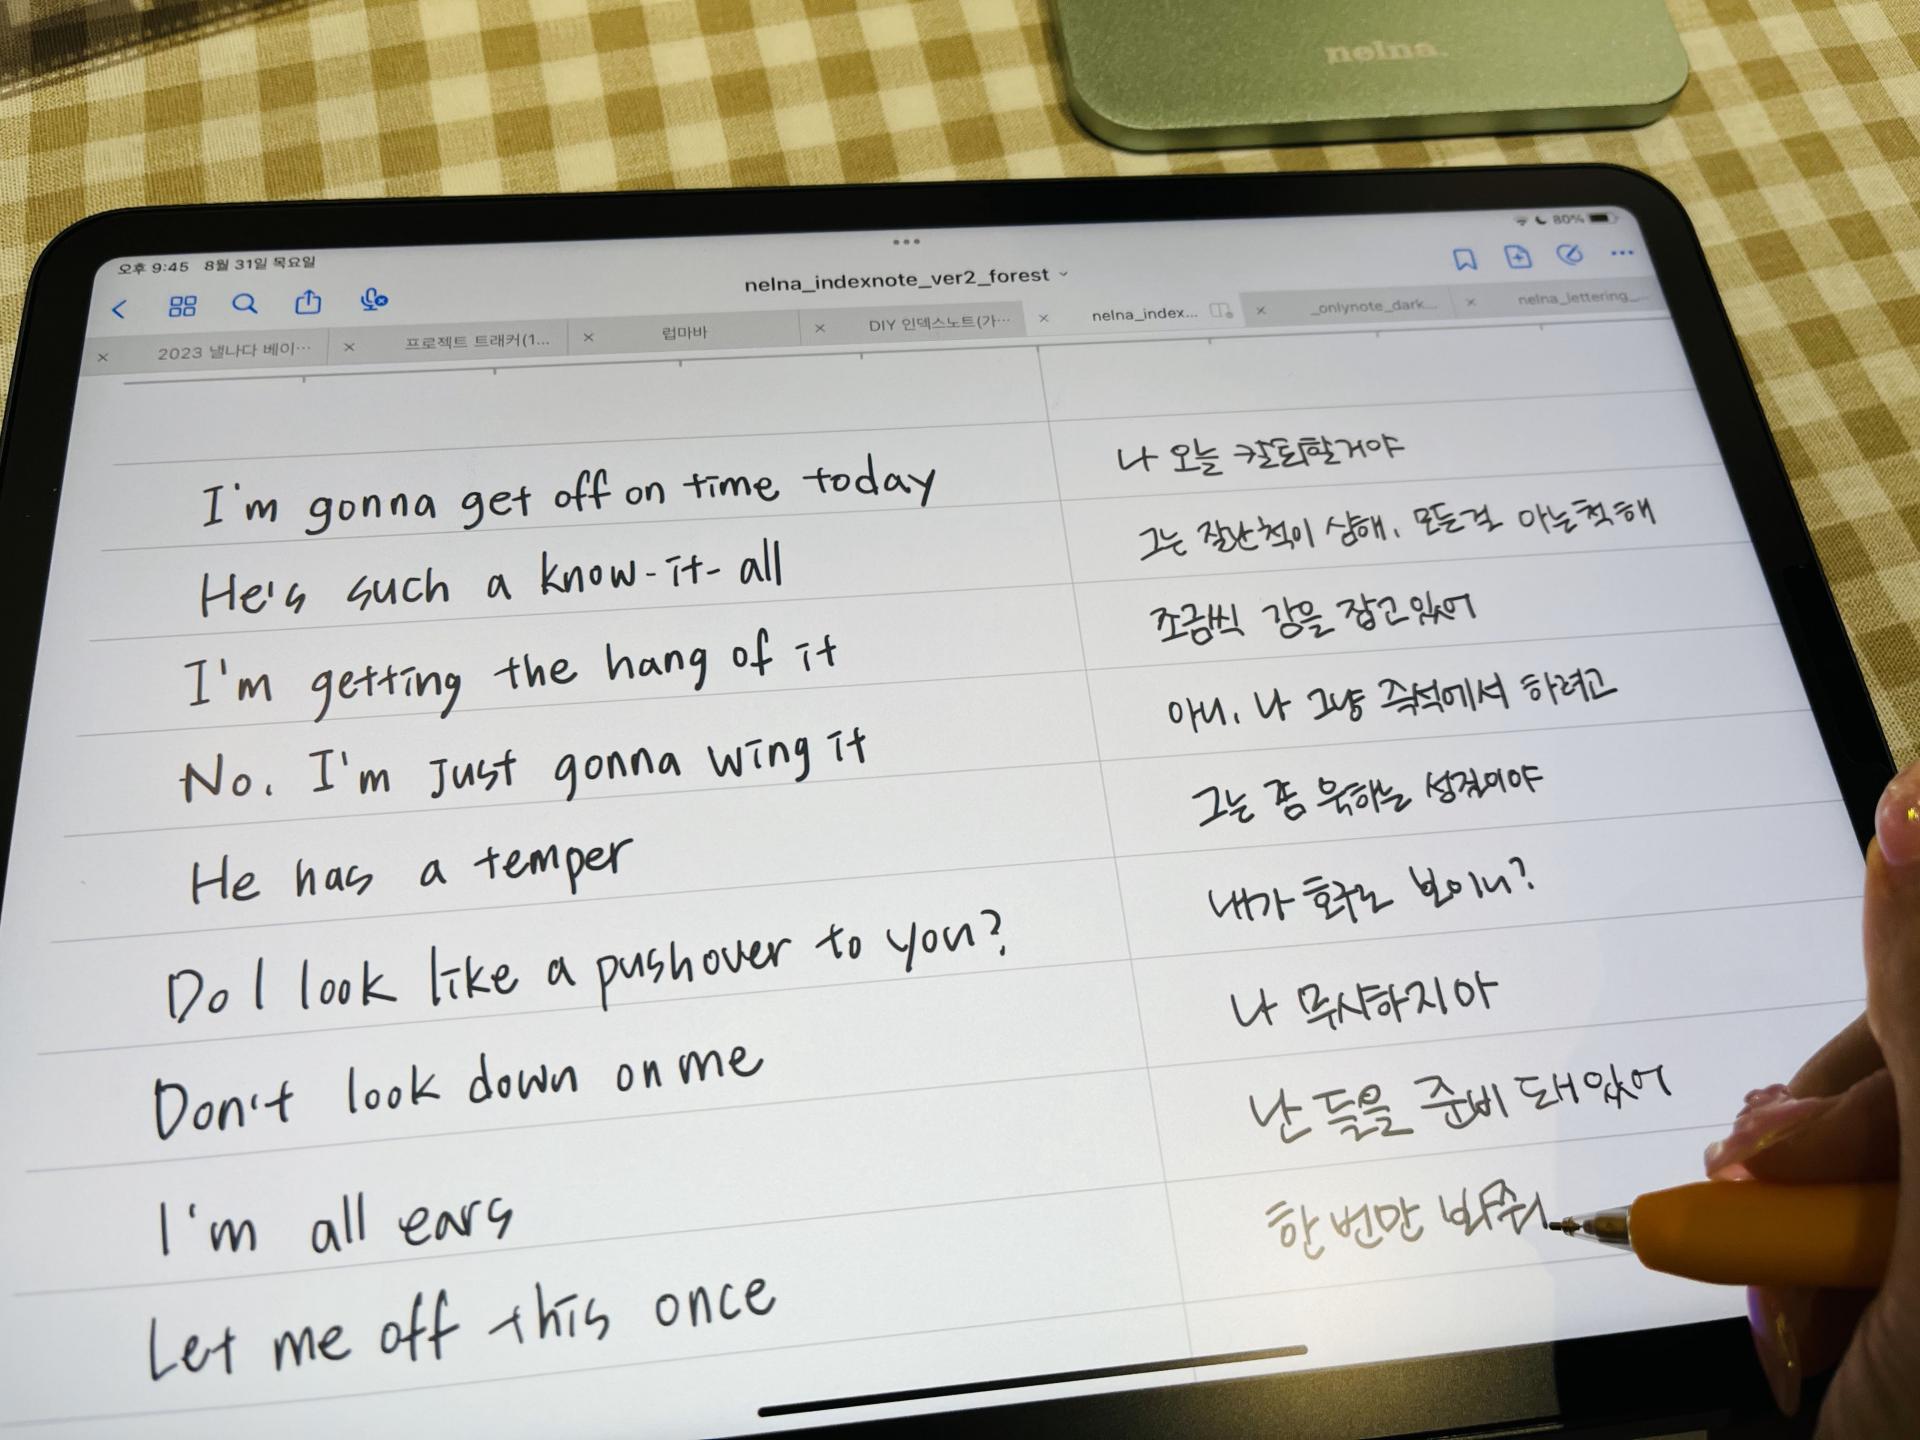 nelna.
오후 9:45 8월 31일 목요일
80%
nelna_indexnote_ver2_forest
2023 낼나다 베이…
프로젝트 트래커(1...
럽마바
DIY 인덱스노트(가…
nelna_index...
_onlynote_dark...
nelna_lettering_...
I'm gonna get off on time today
나 오늘 칼퇴할거야
He's such a know-it-all
그는 잘난척이 심해, 모든걸 아는척해
I'm getting the hang of it
조금씩 감을 잡고있어
No. I'm just gonna wing it
아니, 나 그냥 즉석에서 하려고
He has a temper
그는 좀 욱하는 성질이야
Do I look like a pushover to you?
내가 호구로 보이니?
Don't look down on me
나 무시하지마
I'm all ears
난 들을 준비 돼있어
Let me off this once
한번만 봐줘